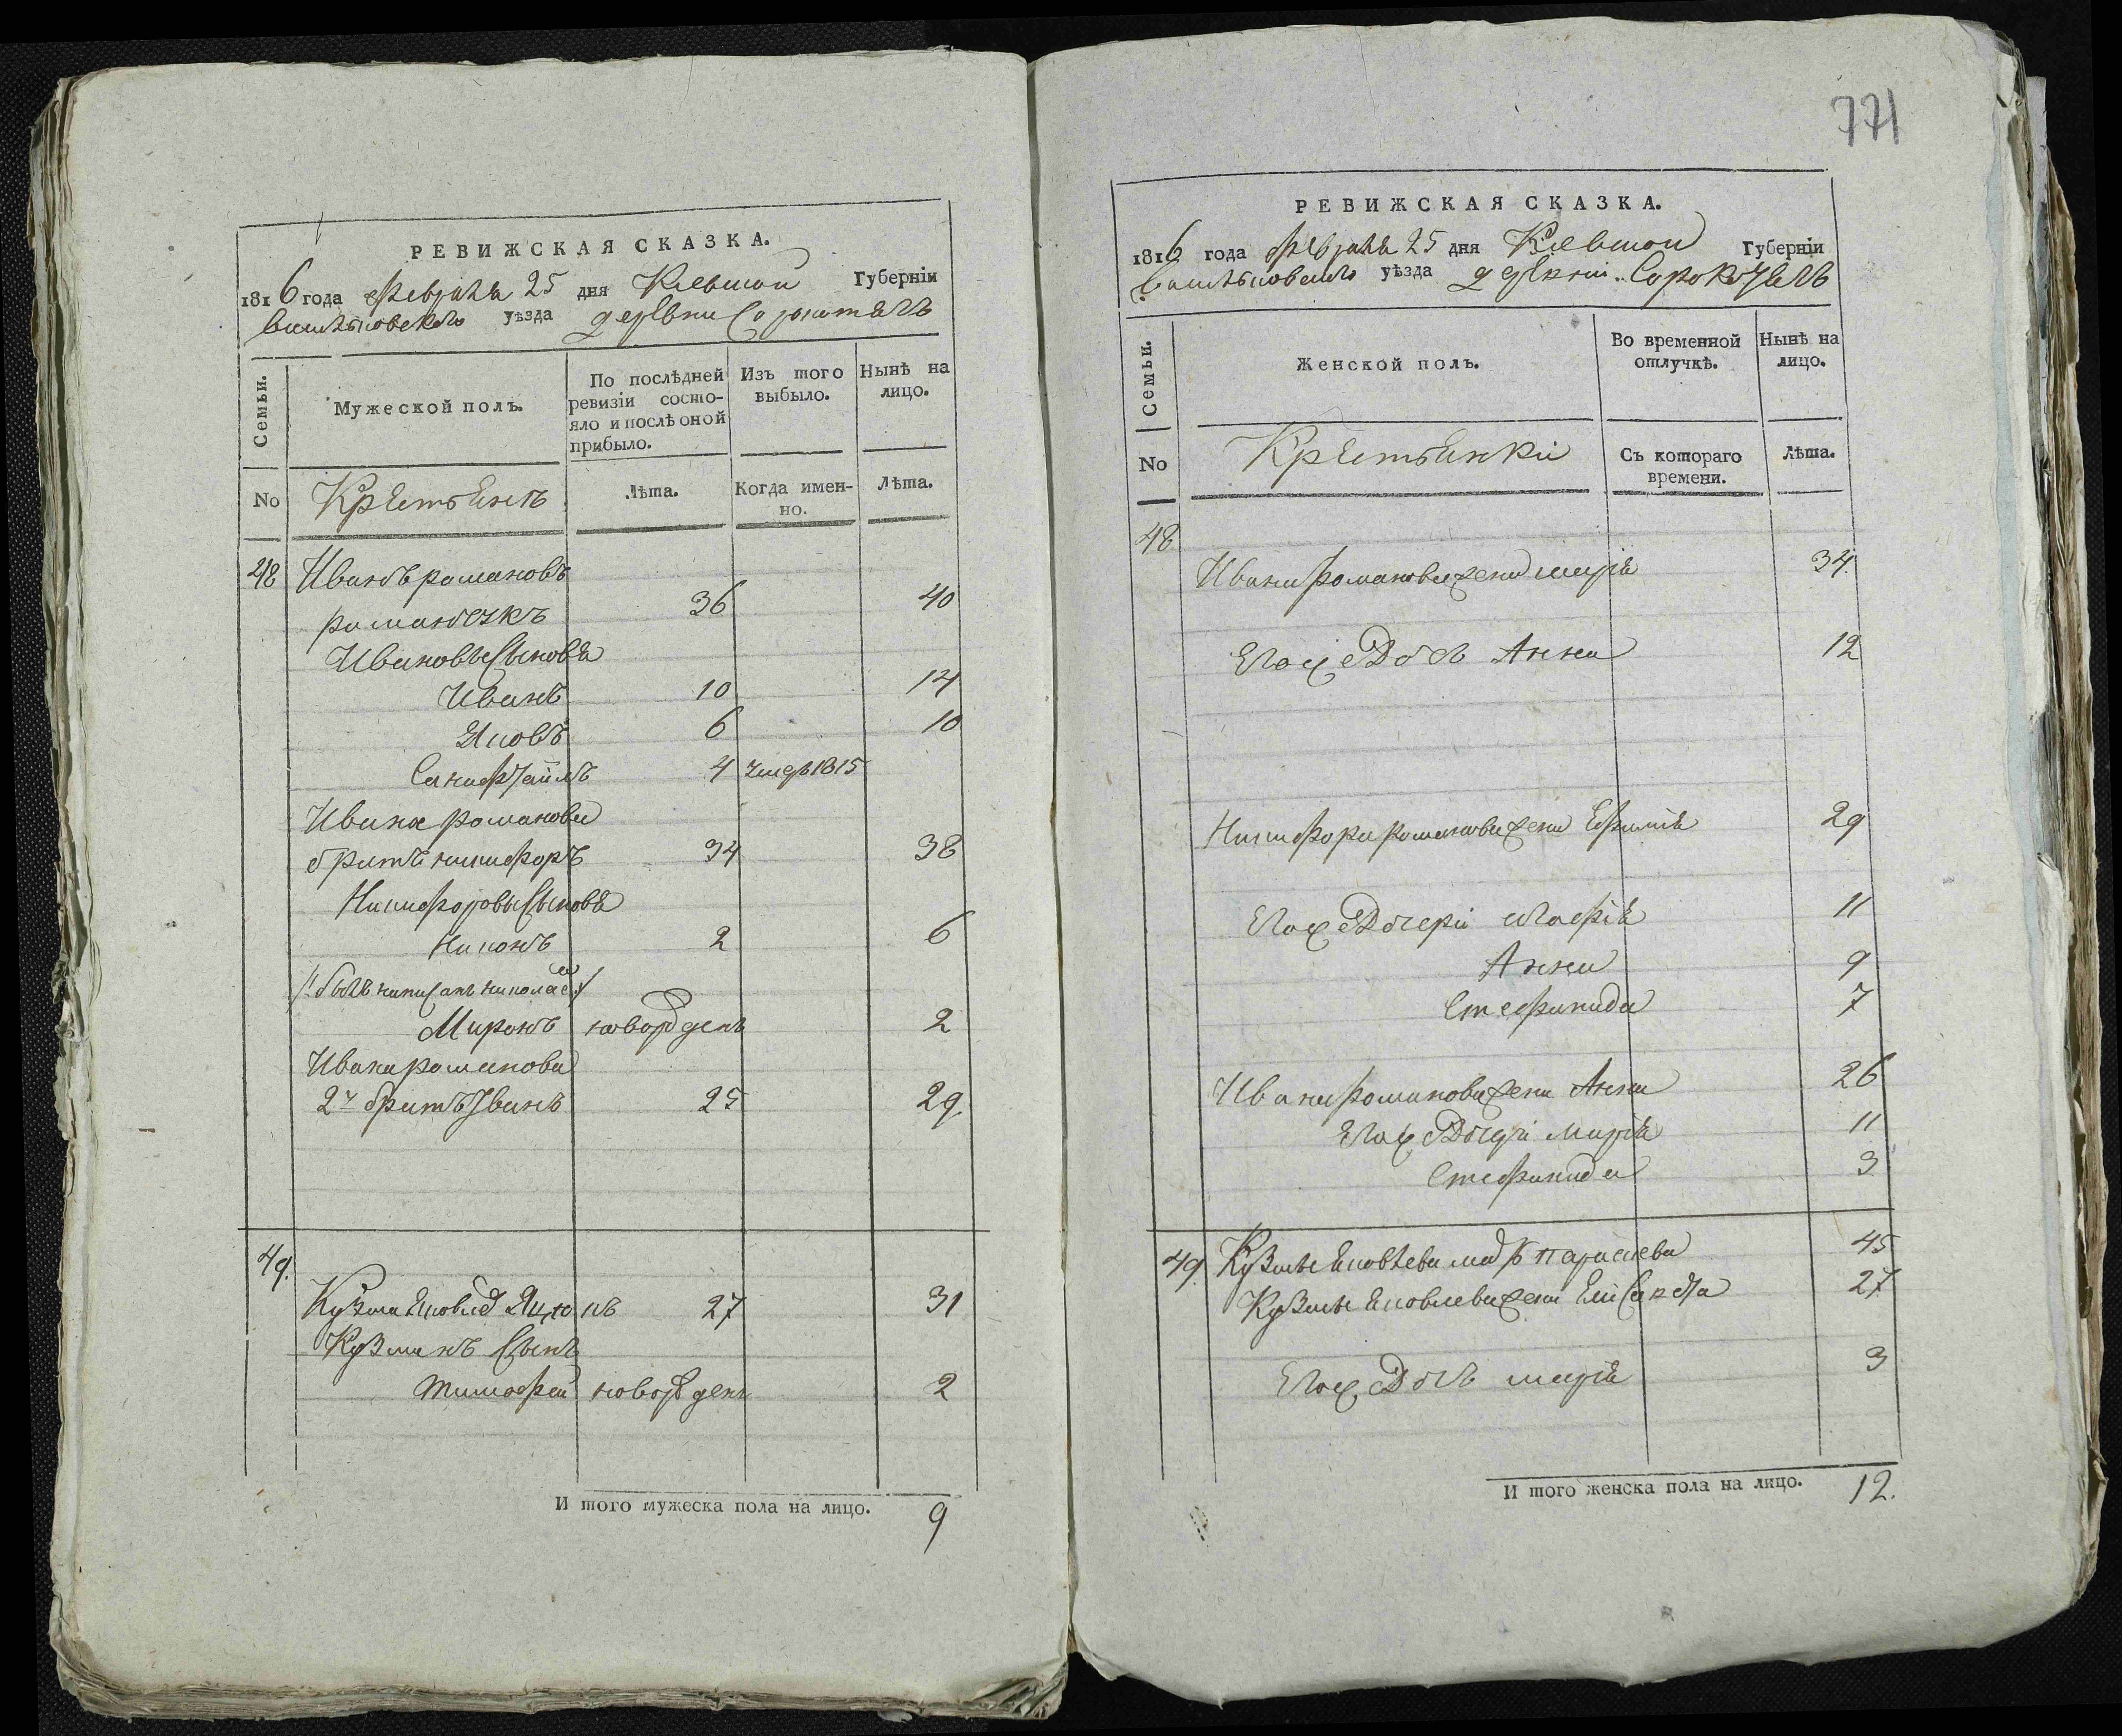 РЕВИЖСКАЯ СКАЗКА.
1816 года февраля 25 дня Киевской Губерніи
Васильковскаго уѣзда деревни Сорокотягъ
Семьи.
Мужеской полъ.
По послѣдней ревизіи состояло и послѣ оной прибыло.
Изъ того выбыло.
Нынѣ на лицо.
No
Крестьянъ
Лѣта.
Когда именно.
Лѣта.
48 Иванъ романовъ
36 40
Ивановы Сыновя
Иванъ 10 14
Яковъ 6 10
4 умеръ 1815
Ивана романова
братъ никифоръ 34 38
Никифоровы Сыновя
Никонъ 2 6
былъ написанъ николаем
Миронъ новорденъ 2
Ивана романова
2й братъ Иванъ 25 29.
49.
Кузма Яковлев 27 31
Кузминъ Сынъ
тимофей новорденъ 2
И того мужеска пола на лицо. 9
771
РЕВИЖСКАЯ СКАЗКА.
1816 года февраля 25 дня Киевской Губерніи
Васильковскаго уѣзда деревни Сорокотягъ
Семьи.
Женской полъ.
Во временной отлучкѣ.
Нынѣ на лицо.
No
Крестьянки
Съ котораго времени.
Лѣта.
48
Ивана романова жена марія 34
Его же Дочь Анна 12
Никифора романова жена Ефимія 29
Его же Дочери 11
Анна 9
Стефанида 7
Ивана романова жена Анна 26
Его же Дочери марія 11
Стефанида 3
49 Кузмы Яковлева мать параскева 45
Кузмы Яковлева жена Елисавета 27
Его же Дочь марія 3
И того женска пола на лицо. 12.